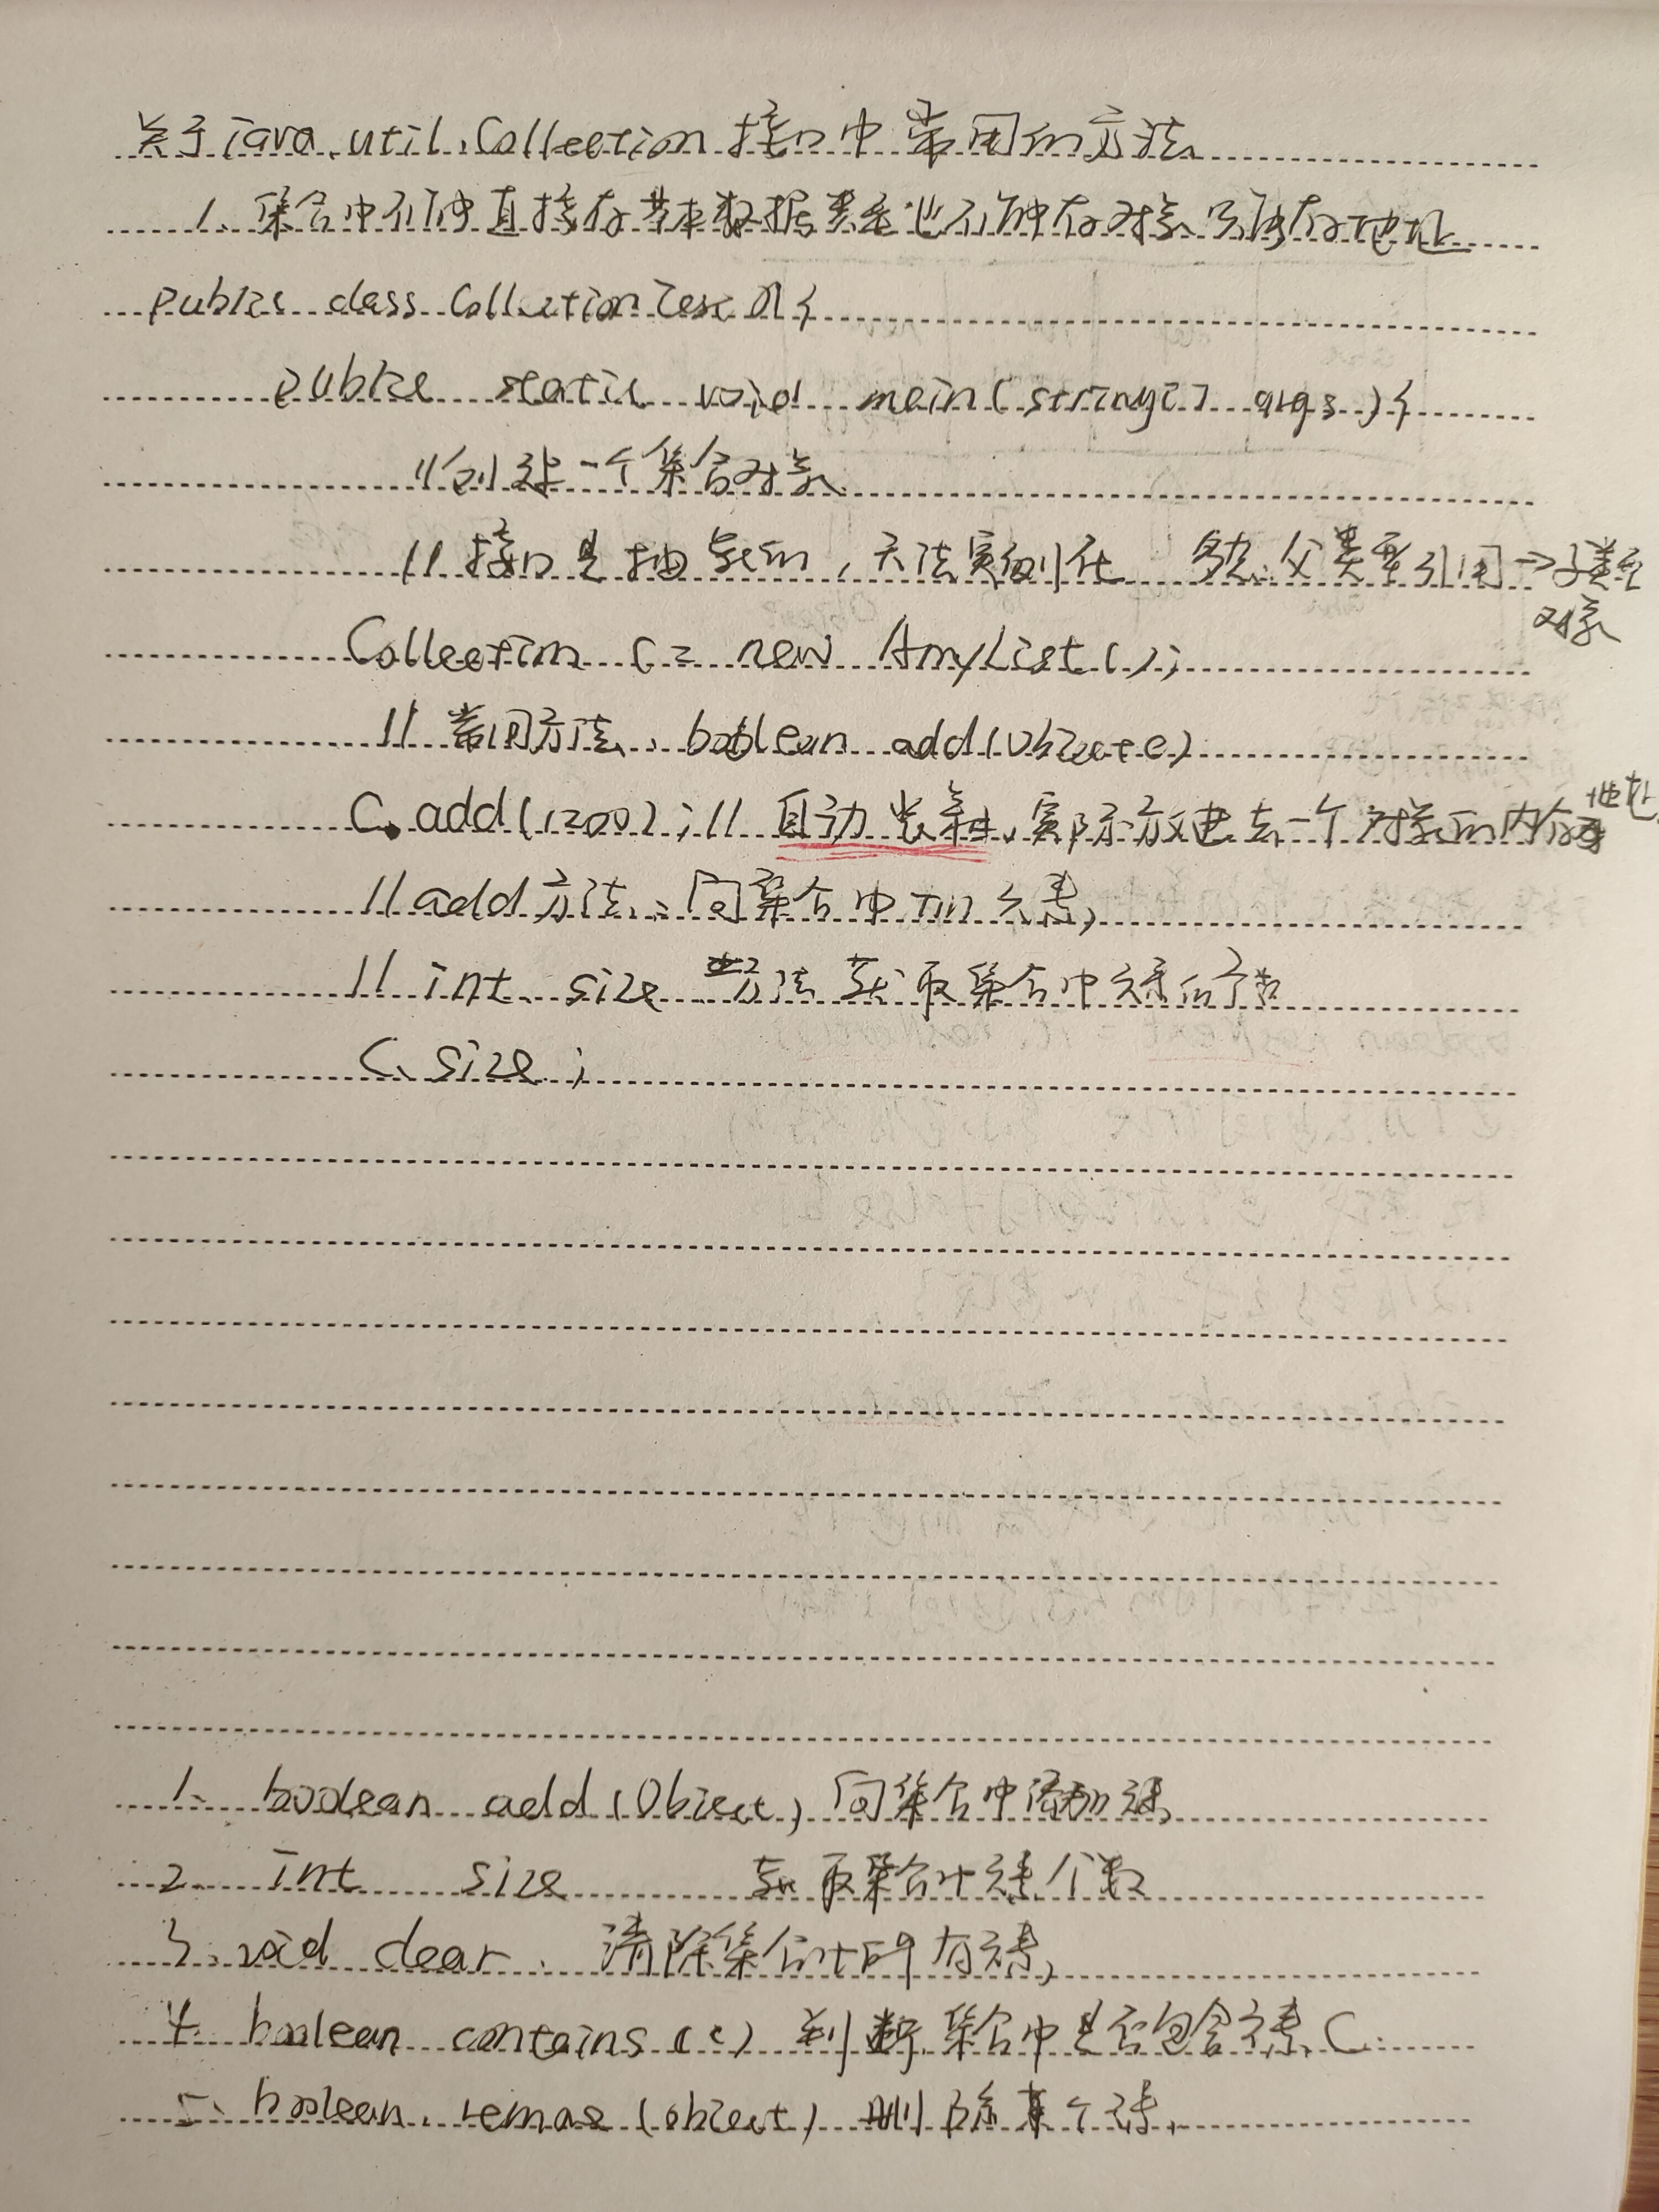 关于java.util.Collection接口中常用的方法
1、集合中不能直接存基本数据类型也不能存对象只能存地址
public class CollectionTest01{
public static void main(string[] args){
//创建一个集合对象
//接口是抽象的,无法实例化 多态.父类型引用→子类型
对象
Collection c = new ArrayList();
//常用方法、boolean add(Object e)
C.add(1200);//自动装箱,实际放进去一个对象的内存地址
//add方法:向集合中加元素,
//int size 方法 获取集合中元素的个数
C.size;
1、boolean add(Object) 向集合中添加元素
2、int size 获取集合中元素个数
3.void clear. 清除集合中所有元素,
4. boolean contains(c) 判断集合中是否包含元素C.
5、boolean.remove(object) 删除某个元素.